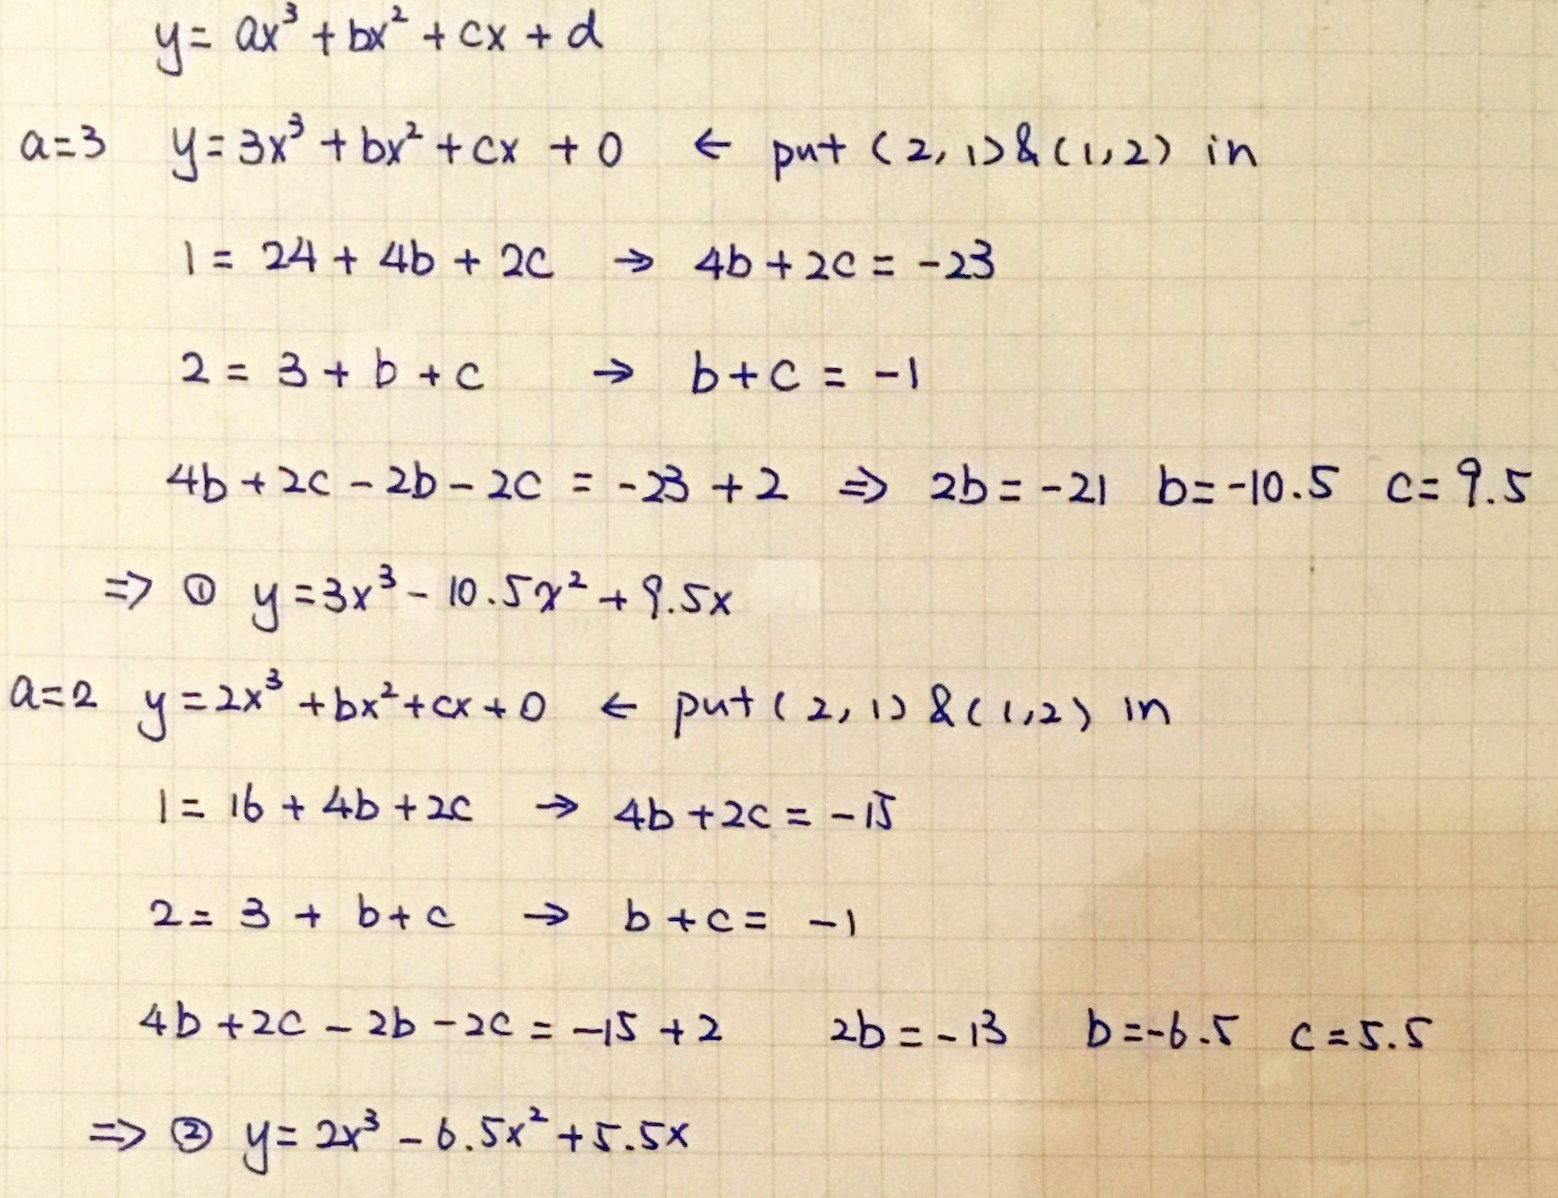 y = ax³ + bx² + cx + d
a=3 y = 3x³ + bx² + cx + 0 ← put (2,1) & (1,2) in
1 = 24 + 4b + 2c → 4b + 2c = -23
2 = 3 + b + c → b + c = -1
4b + 2c - 2b - 2c = -23 + 2 ⇒ 2b = -21 b = -10.5 c = 9.5
⇒ ① y = 3x³ - 10.5x² + 9.5x
a=2 y = 2x³ + bx² + cx + 0 ← put (2,1) & (1,2) in
1 = 16 + 4b + 2c → 4b + 2c = -15
2 = 3 + b + c → b + c = -1
4b + 2c - 2b - 2c = -15 + 2 2b = -13 b = -6.5 c = 5.5
⇒ ② y = 2x³ - 6.5x² + 5.5x